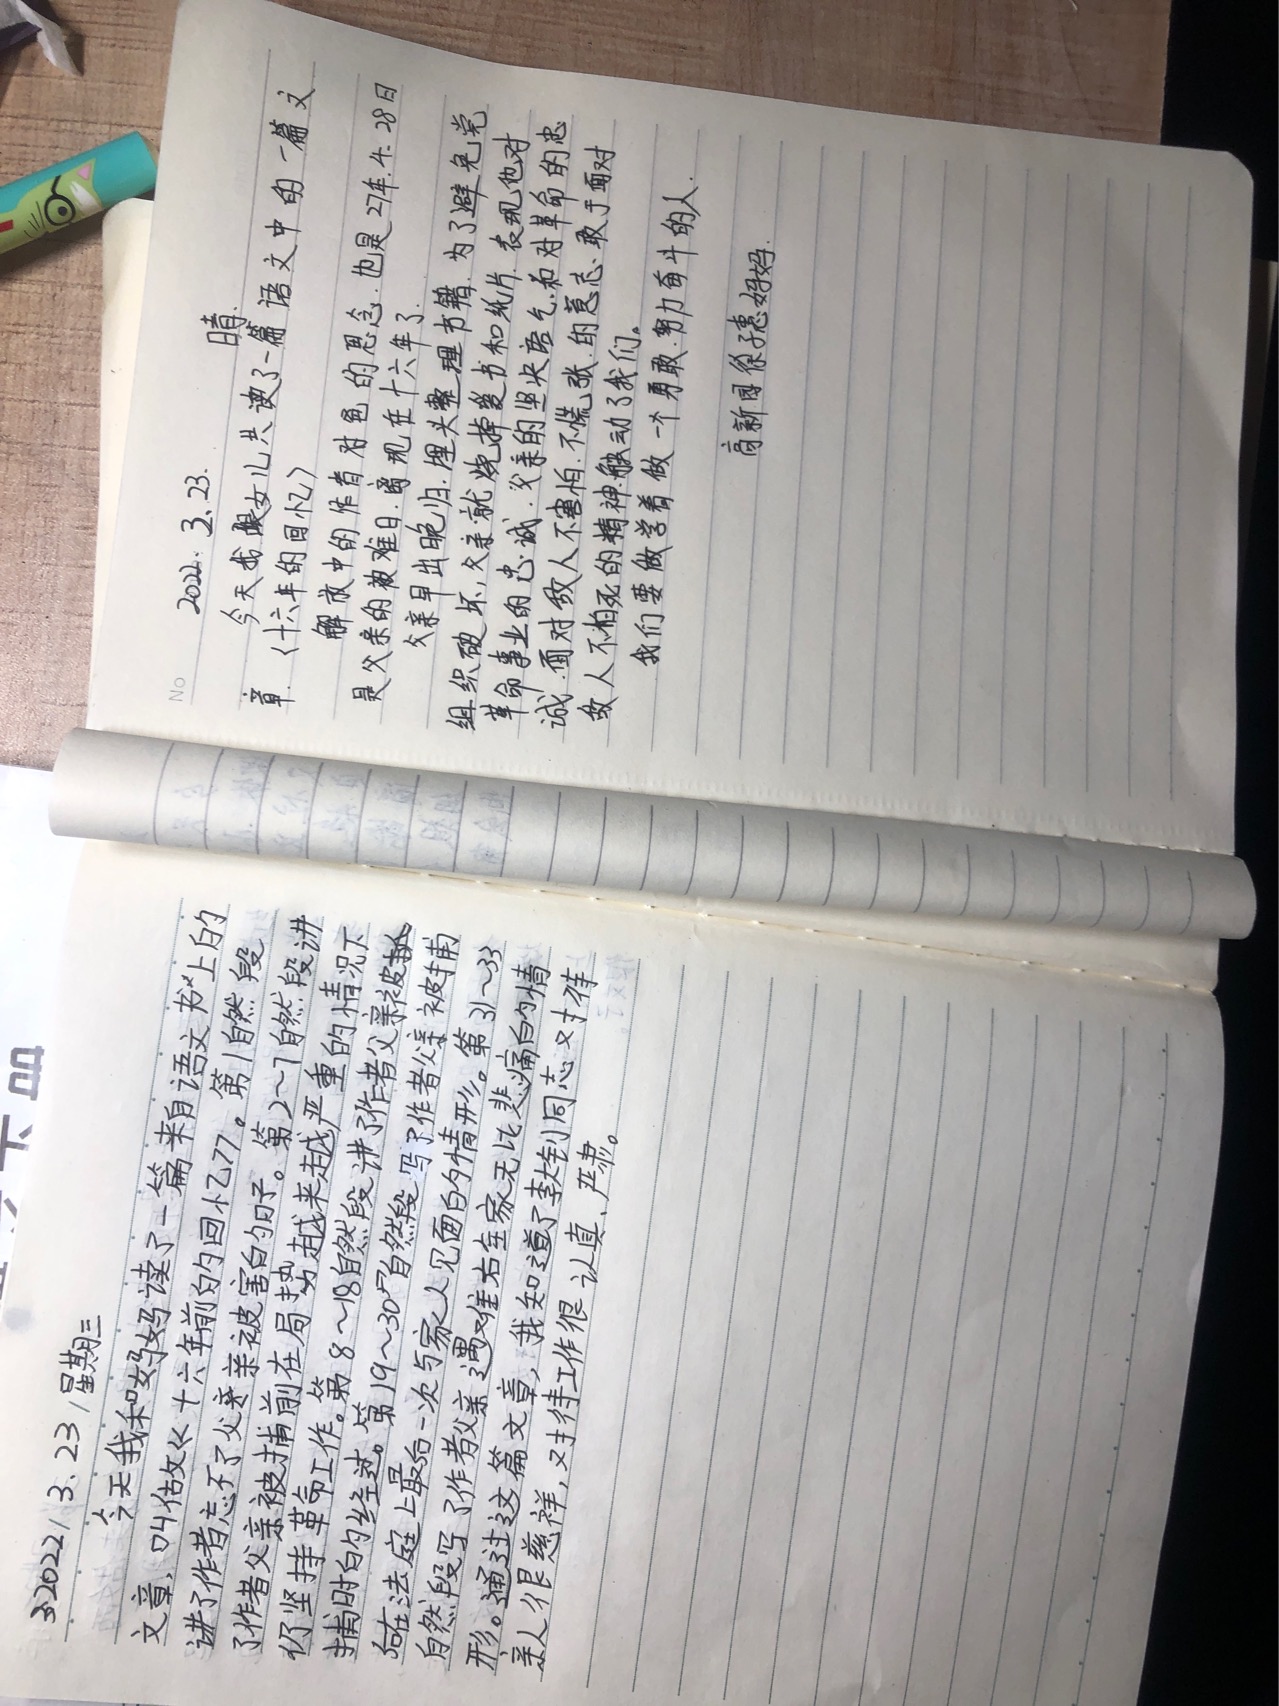 2022/3.23/星期三
今天我和妈妈读了一篇来自语文书上的
文章,叫估攵《十六年前的回忆》。第1自然段
讲了作者忘不了父亲被害的日子。第2~7自然段讲
了作者父亲被捕前在局势越来越严重的情况下
仍坚持革命工作。第8~18自然段讲了作者父亲被
捕时的经过。第19~30自然段写了作者父亲被捕
后在法庭上最后一次与家人见面的情形。第31~33
自然段写了作者父亲遇难后全家无比悲痛的情
形。通过这篇文章,我知道了李大钊同志对待
亲人很慈祥,对待工作很认真、严肃。
No
2022.3.23. 晴.
今天我跟女儿共读了一篇语文中的一篇文
章.〈十六年的回忆〉
解放中的作者对爸的思念.也是27年.4.28日
是父亲的被难日.离现在十六年了.
父亲早出晚归.埋头整理书籍.为了避免党
组织破坏,父亲就烧掉爱书和纸片.表现他对
革命事业的忠诚.父亲的坚决语气.和对革命的忠
诚.面对敌人不害怕.不慌张.的意志.敢于面对
敌人不怕死的精神.触动了我们。
我们要做学着做一个勇敢.努力奋斗的人.
高新园徐子惠妈妈.
下册